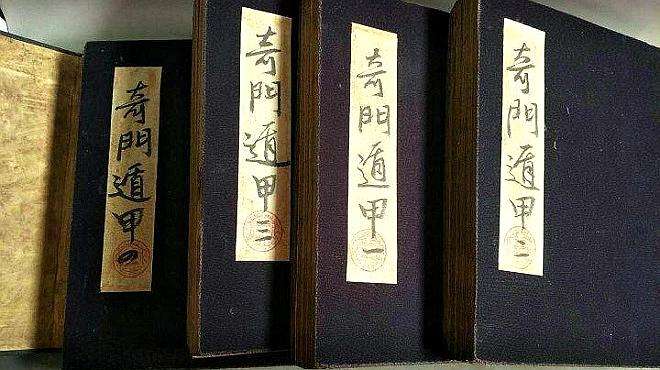 奇門遁甲四
奇門遁甲三
奇門遁甲一
奇門遁甲二